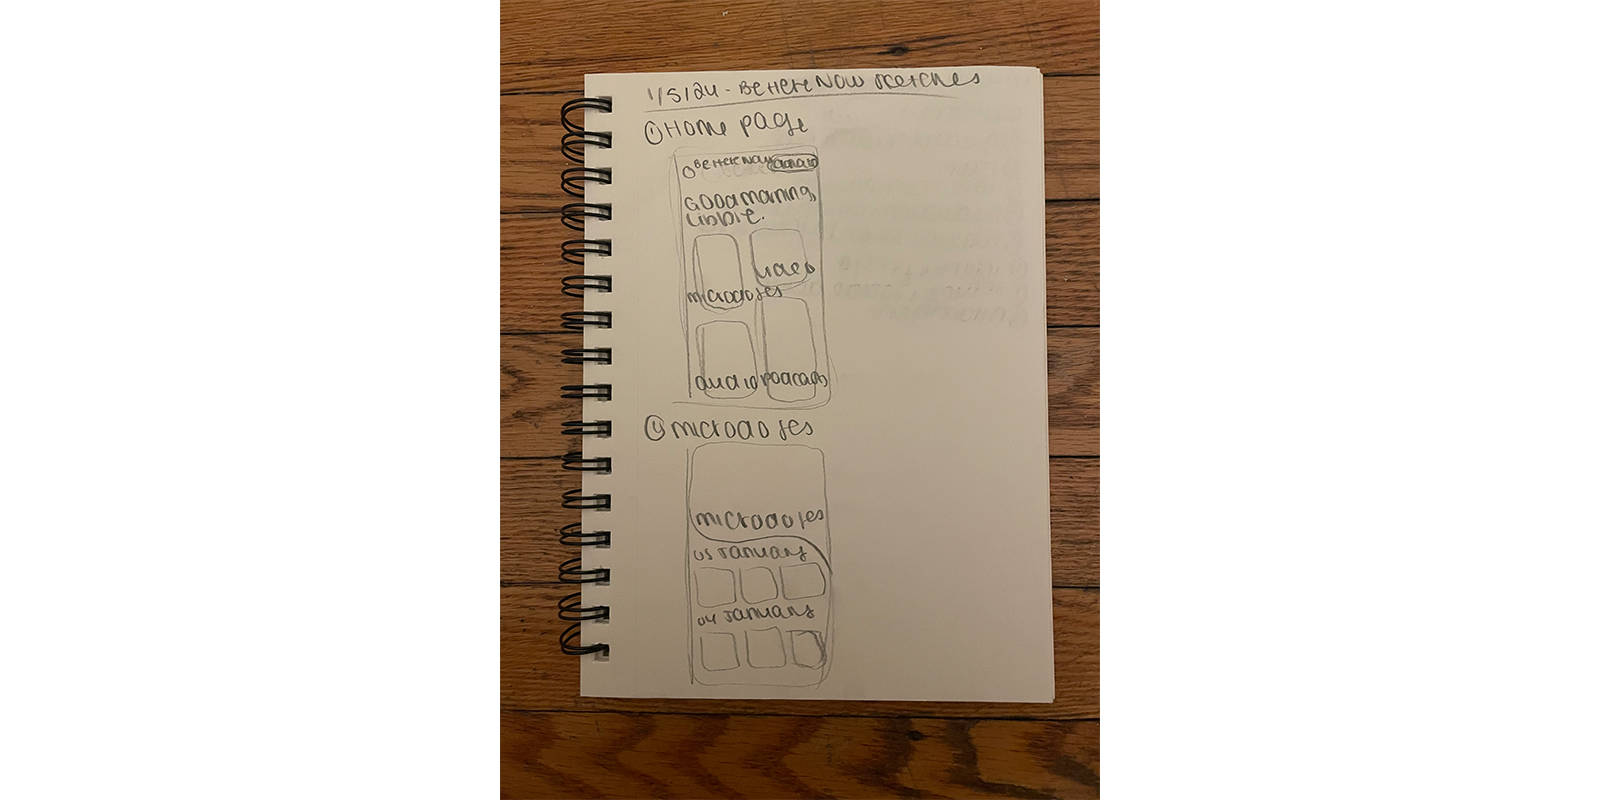 1/5/24 - Be Here Now sketches
① Home page
Be Here Now
Good morning,
Libbie.
video
microdoses
audio podcasts
microdoses
microdoses
05 January
04 January